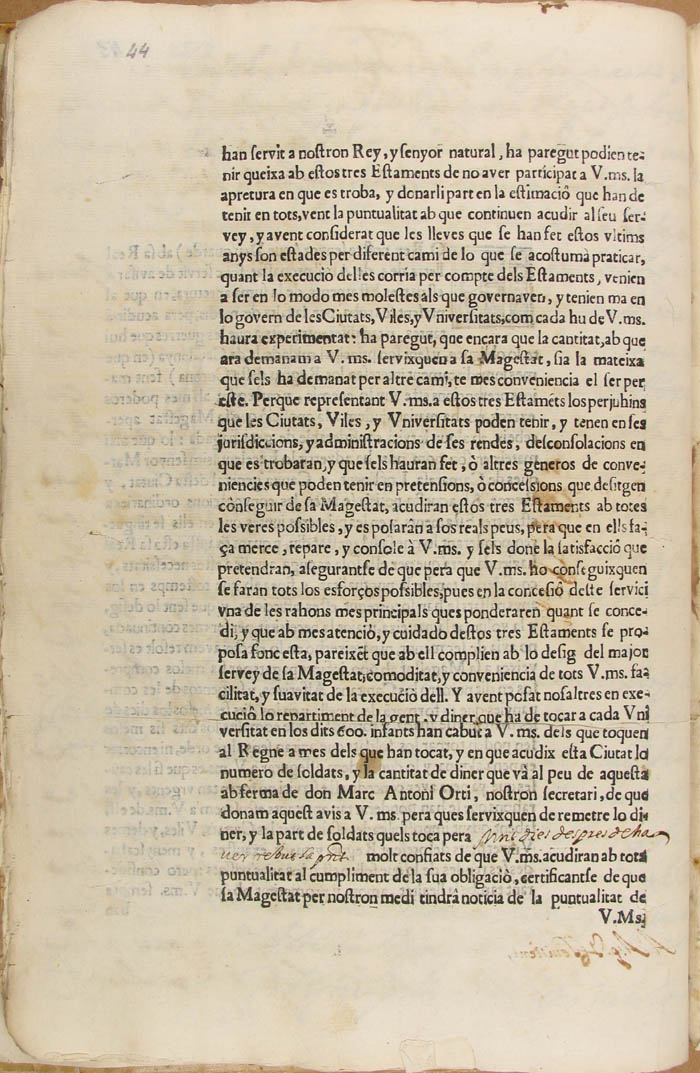 44
han ſervit a noſtron Rey, y ſenyor natural, ha paregut podien te-
nir queixa ab eſtos tres Eſtaments de no aver participat a V.ms. la
apretura en que es troba, y donarli part en la eſtimaciô que han de
tenir en tots, vent la puntualitat ab que continuen acudir al ſeu ſer-
vey, y avent conſiderat que les lleves que ſe han fet eſtos vltims
anys ſon eſtades per diferent cami de lo que ſe acoſtuma praticar,
quant la execuciò delles corria per compte dels Eſtaments, venien
a ſer en lo modo mes moleſtes als que governaven, y tenien ma en
lo govern de les Ciutats, Viles, y Vniverſitats, com cada hu de V.ms.
haura experimentat: ha paregut, que encara que la cantitat, ab que
ara demanam a V. ms. ſervixquen a ſa Mageſtat, ſia la mateixa
que ſels ha demanat per altre cami, te mes conveniencia el ſer per
eſte. Perque repreſentant V.ms. a eſtos tres Eſtamẽts los perjuhins
que les Ciutats, Viles, y Vniverſitats poden tenir, y tenen en ſes
jurisdiccions, y adminiſtracions de ſes rendes, deſconſolacions en
que es trobaran, y que ſels hauran fet, ò altres generos de conve-
niencies que poden tenir en pretenſions, ò conceſſions que deſitgen
cònſeguir de ſa Mageſtat, acudiran eſtos tres Eſtaments ab totes
les veres poſſibles, y es poſaràn a ſos reals peus, pera que en ells fa-
ça merce, repare, y conſole à V.ms. y ſels done la ſatisfacciò que
pretendran, aſegurantſe de que pera que V.ms. ho conſeguixquen
ſe faran tots los esforços poſsibles, pues en la conceſiô deſte ſervici
vna de les rahons mes principals ques ponderaren quant ſe conce-
di, y que ab mes atenciò, y cuidado deſtos tres Eſtaments ſe pro-
poſa fonc eſta, pareixẽt que ab ell complien ab lo deſig del major
ſervey de ſa Mageſtat, comoditat, y conveniencia de tots V.ms. fa-
cilitat, y ſuavitat de la execuciò dell. Y avent pòſat noſaltres en exe-
cuciô lo repartiment de la gent, y diner que ha de tocar a cada Vni
verſitat en los dits 600. infants han cabut a V. ms. dels que toquen
al Regne a mes dels que han tocat, y en que acudix eſta Ciutat lo
numero de ſoldats, y la cantitat de diner que và al peu de aqueſta
ab ferma de don Marc Antoni Orti, noſtron ſecretari, de que
donam aqueſt avis a V. ms. pera ques ſervixquen de remetre lo di-
ner, y la part de ſoldats quels toca pera vint dies despres de ha
ver rebut la pnt molt confiats de que V.ms. acudiran ab tota
puntualitat al cumpliment de la ſua obligaciò, certificantſe de que
ſa Mageſtat per noſtron medi tindrà noticia de la puntualitat de
V.Ms.